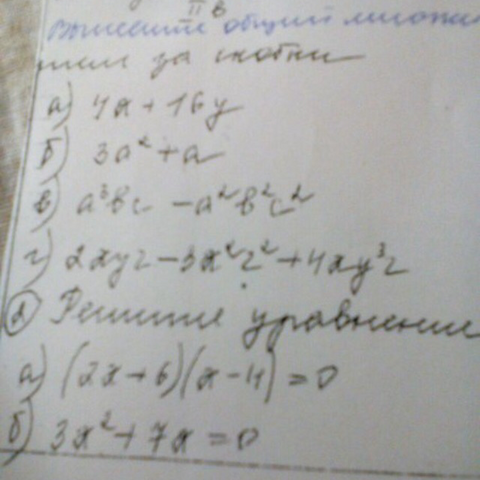 II в
Вынесите общий множи
тель за скобки
а) 4x + 16y
б) 3a² + a
в) a³bc - a²b²c²
г) 2xyz - 3x²z² + 4xy³z
② Решите уравнение
а) (2x + 6)(x - 4) = 0
б) 3x² + 7x = 0